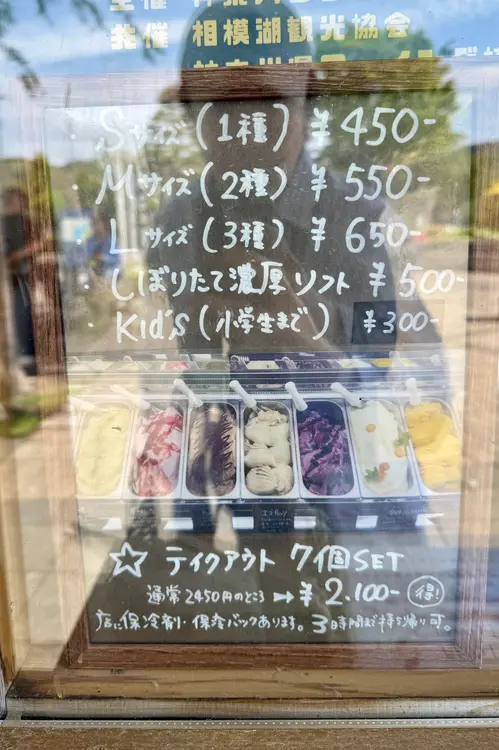 共催 相模湖観光協会
・Sサイズ(1種) ¥450-
・Mサイズ(2種) ¥550-
・Lサイズ(3種) ¥650-
・しぼりたて濃厚ソフト ¥500-
・Kid's(小学生まで) ¥300-
☆ テイクアウト 7個SET
通常2450円のところ ➡ ¥2,100- 得!
店に保冷剤・保冷バックあります。3時間まで持ち帰り可。